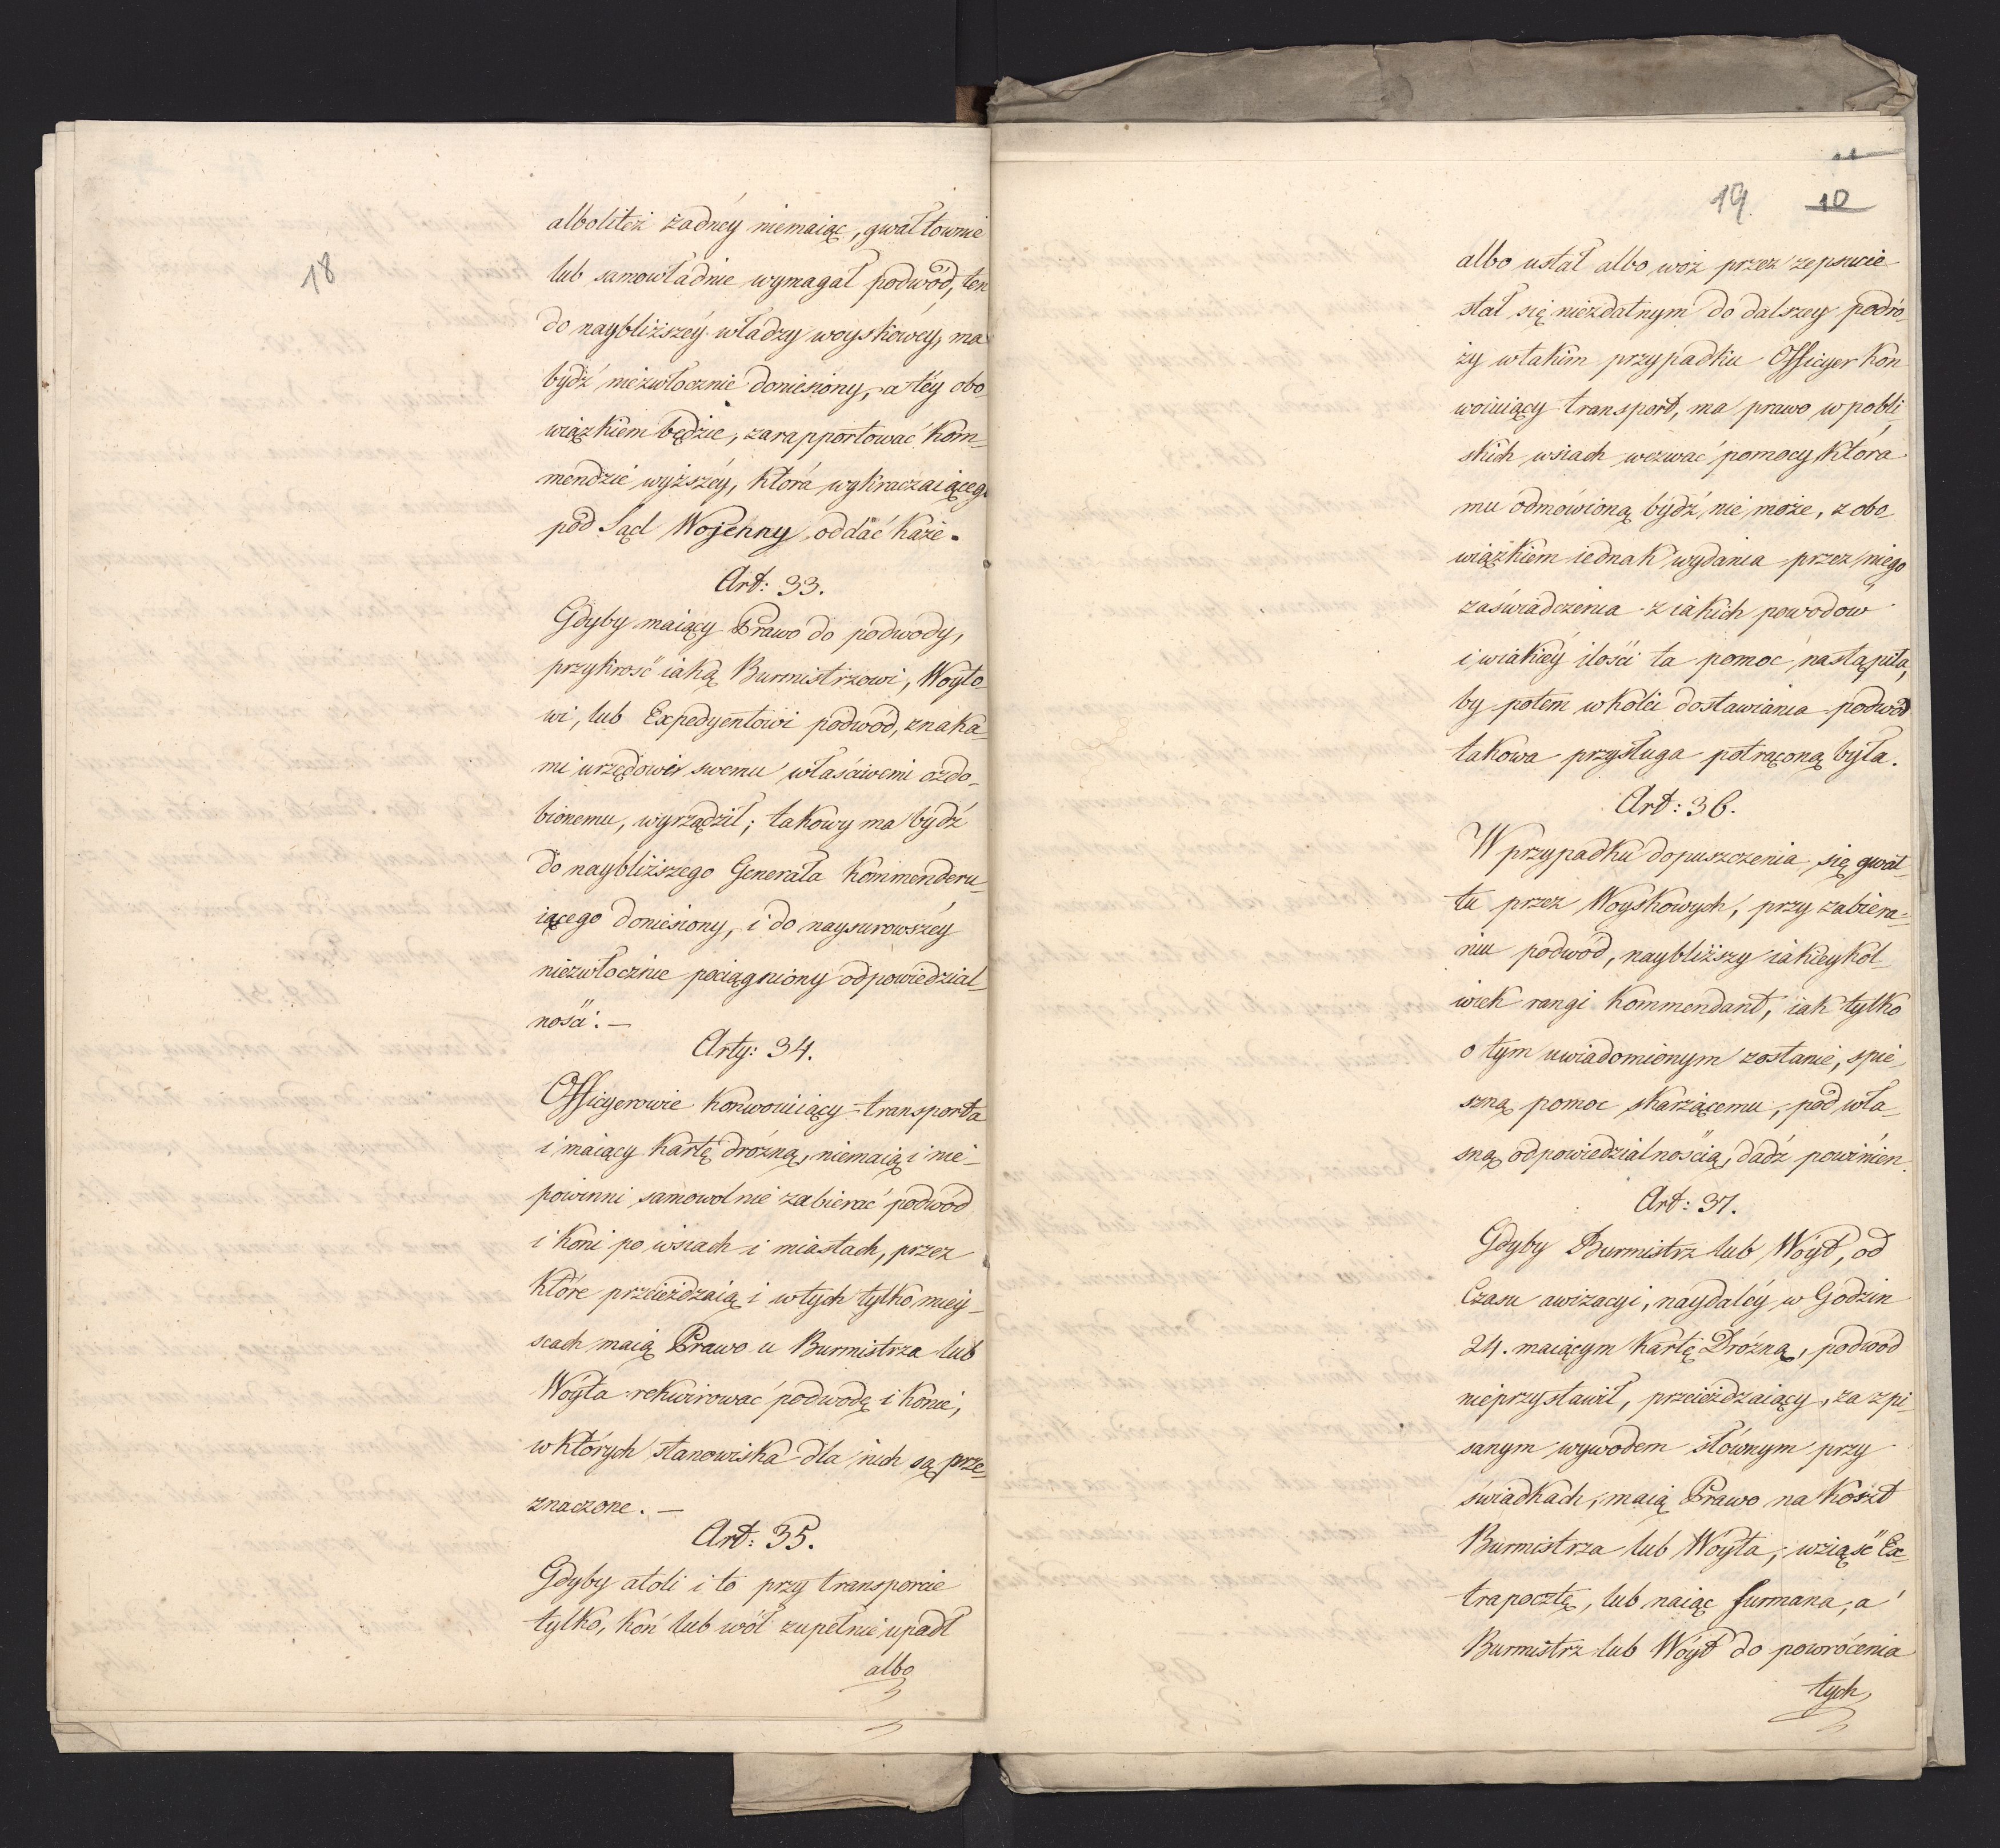 18
albolitéż żadnéy niemaiąc, gwałtownie
lub samowładnie wymagał podwód, ten
do naybliższéy władzy woyskowéy, ma
bydź niezwłocznie doniesiony, a téy obo
wiązkiem będzie, zarapportować kom„
mendzie wyższéy, która wykraczaiącego
pod Sąd Wojenny oddać każe.
Art: 33.
Gdyby maiący Prawo do podwody,
przykrość iaką Burmistrzowi, Woyto„
wi, lub Expedyentowi podwód, znaka„
mi urzędowi swemu właściwemi ozdo„
bionemu, wyrządził; takowy ma bydź
do naybliższego Generała kommenderu„
iącego doniesiony, i do naysurowszéy
niezwłocznie pociągniony odpowiedzial„
nośći. —
Arty: 34.
Officyerowie konwoiuiący transporta
i maiący kartę dróżną, niemaią i nie„
powinni samowolnie zabierać podwód
i koni po wsiach i miastach, przez
które przeieżdzaią i w tych tylko miey„
scach maią Prawo u Burmistrza lub
Wóyta rekwirować podwodę i konie,
w których stanowiska dla nich są prze„
znaczone. —
Art: 35.
Gdyby atoli i to przy transporcie
tylko, koń lub wół zupełnie upadł
albo
19 10
albo ustał albo wóz przez zepsucie
stał się niezdatnym do dalszey podró„
ży w takim przypadku Officyer kon
woiuiący transport, ma prawo w pobli
skich wsiach wezwać pomocy która
mu odmówioną bydź nie może, z obo„
wiązkiem iednak wydania przez niego
zaświadczenia z iakich powodów
i w iakiéy ilości ta pomoc nastąpiła,
by potem w kolei dostawiania podwód
takowa przysługa potrąconą była.
Art: 36.
W przypadku dopuszczenia się gwał„
tu przez Woyskowych, przy zabiera„
niu podwód, naybliższy iakieykol„
wiek rangi kommendant, iak tylko
o tym uwiadomionym zostanie, spie„
szną pomoc skarżącemu, pod wła„
sną odpowiedzialnością, dadź powinien.
Art: 37.
Gdyby Burmistrz lub Wóyt, od
Czasu awizacyi, naydaléy w Godzin
24. maiącym kartę Dróżną, podwód
nieprzystawił, przeieżdzaiący, za spi„
sanym wywodem słównym przy
świadkach, maią Prawo na koszt
Burmistrza lub Wóyta, wziąść Ex„
trapocztę, lub naiąć furmana, a
Burmistrz lub Wóyt do powrócenia
tych